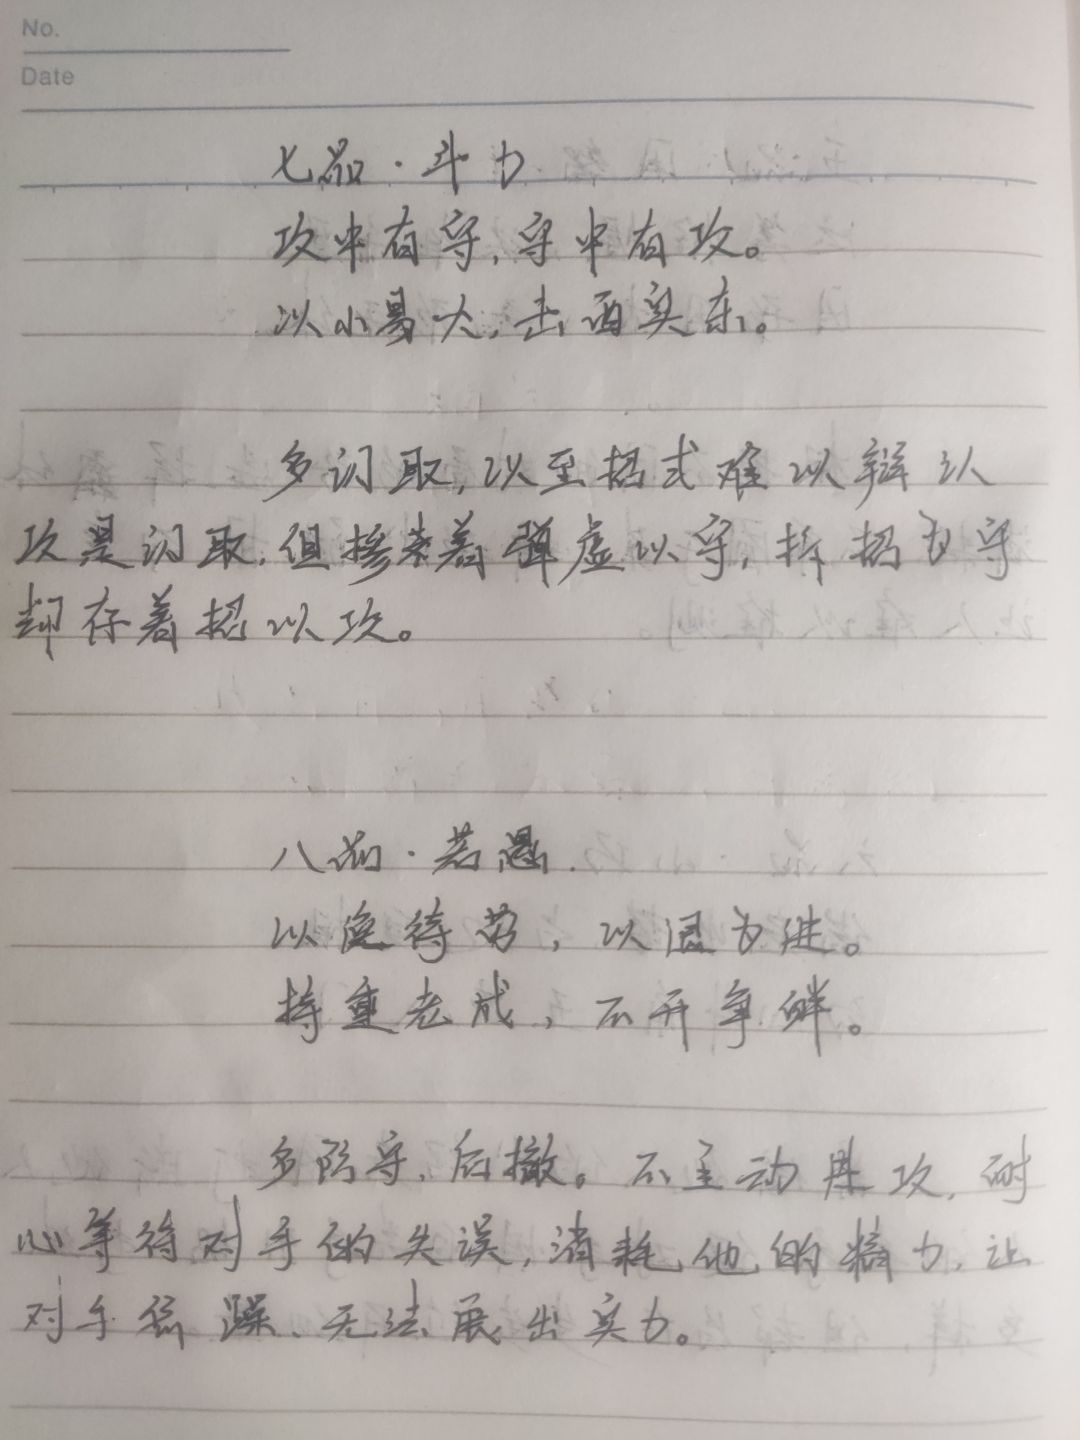 No.
Date
七品·斗力
攻中有守，守中有攻。
以小易大，击西实东。
多诇取，以至招式难以辩认
攻是诇取，但掺杂着弹虚以守，拆招为守
却存着招以攻。
八品·若愚
以逸待劳，以退为进。
持重老成，不开争衅。
多防守，后撤。不主动进攻，耐
心等待对手的失误，消耗他的精力，让
对手烦躁、无法展出实力。